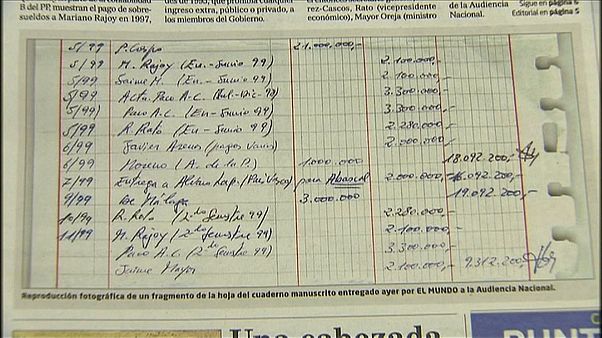 B del PP, muestran el pago de sobre-
sueldos a Mariano Rajoy en 1997,
ingreso extra, público o privado, a
los miembros del Gobierno.
rez-Cascos, Rato (vicepresidente
económico), Mayor Oreja (ministro
de la Audiencia
Nacional.
Sigue en página 6
Editorial en página 5
5/99 P. Crespo 21.000.000,-
5/99 M. Rajoy (En-Junio 99) 2.100.000,-
5/99 Jaime M. (En-Junio 99) 2.100.000,-
5/99 Paco A.C. 3.300.000,-
5/99) Paco A.C. (En-Junio 99) 3.300.000,-
5/99 R. Rato (En-Junio 99) 2.280.000,-
6/99 Javier (pagos varios) 2.000.000,-
6/99 Moreno (A. de la P.) 1.000.000 18.092.200,-
7/99 Entrega a (País Vasco) para Abascal 2.000.000,- 16.092.200,-
9/99 De Málaga 3.000.000 19.092.200,-
10/99 R. Rato (2º Semestre 99) 2.280.000,-
11/99 M. Rajoy (2º Semestre 99) 2.100.000,-
Paco A.C. (2º Semestre 99) 3.300.000,-
Jaime Mayor 2.100.000,- 9.312.200,-
Reproducción fotográfica de un fragmento de la hoja del cuaderno manuscrito entregado ayer por EL MUNDO a la Audiencia Nacional.
Una cabezada